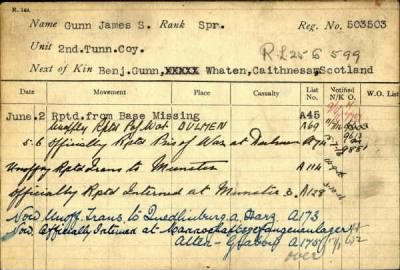 R. 122.
Name Gunn James S. Rank Spr. Reg. No. 503503
Unit 2nd.Tunn.Coy.
R.L 25 6 599
Next of Kin Benj.Gunn, XXXXX Whaten,Caithness,Scotland
Date Movement Place Casualty List No. Notified N/K O. W.O. List
June.2 Rptd.from Base Missing A45
Unoffly Rptd Pof War DULMEN A69
5.6 Officially Rptd Pris of War at Dulmen A74
Unoffly Rptd Trans to Munster A114
Officially Rptd Interned at Munster 3. A128
Now Unoff. Trans. to Quedlinburg a. Harz. A173
Now Officially Interned at Mannschaftsgefangenenlager
Alten-Grabow A175
over